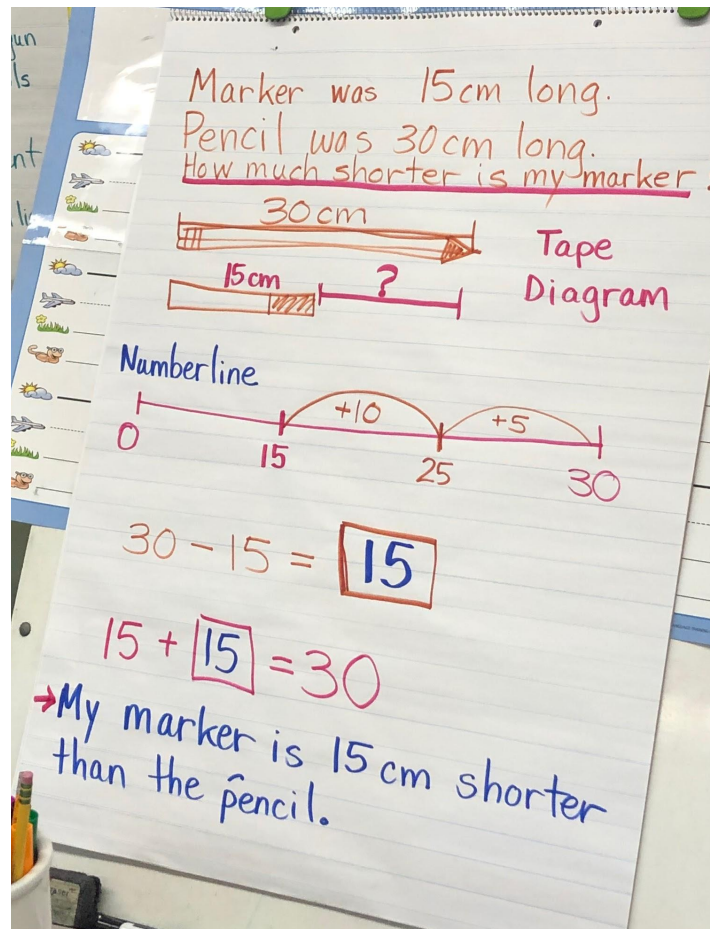 Marker was 15cm long.
Pencil was 30cm long.
How much shorter is my marker.
30cm
Tape
Diagram
15cm
?
Numberline
+10
+5
0
15
25
30
30 - 15 = 15
15 + 15 = 30
→My marker is 15cm shorter
than the pencil.